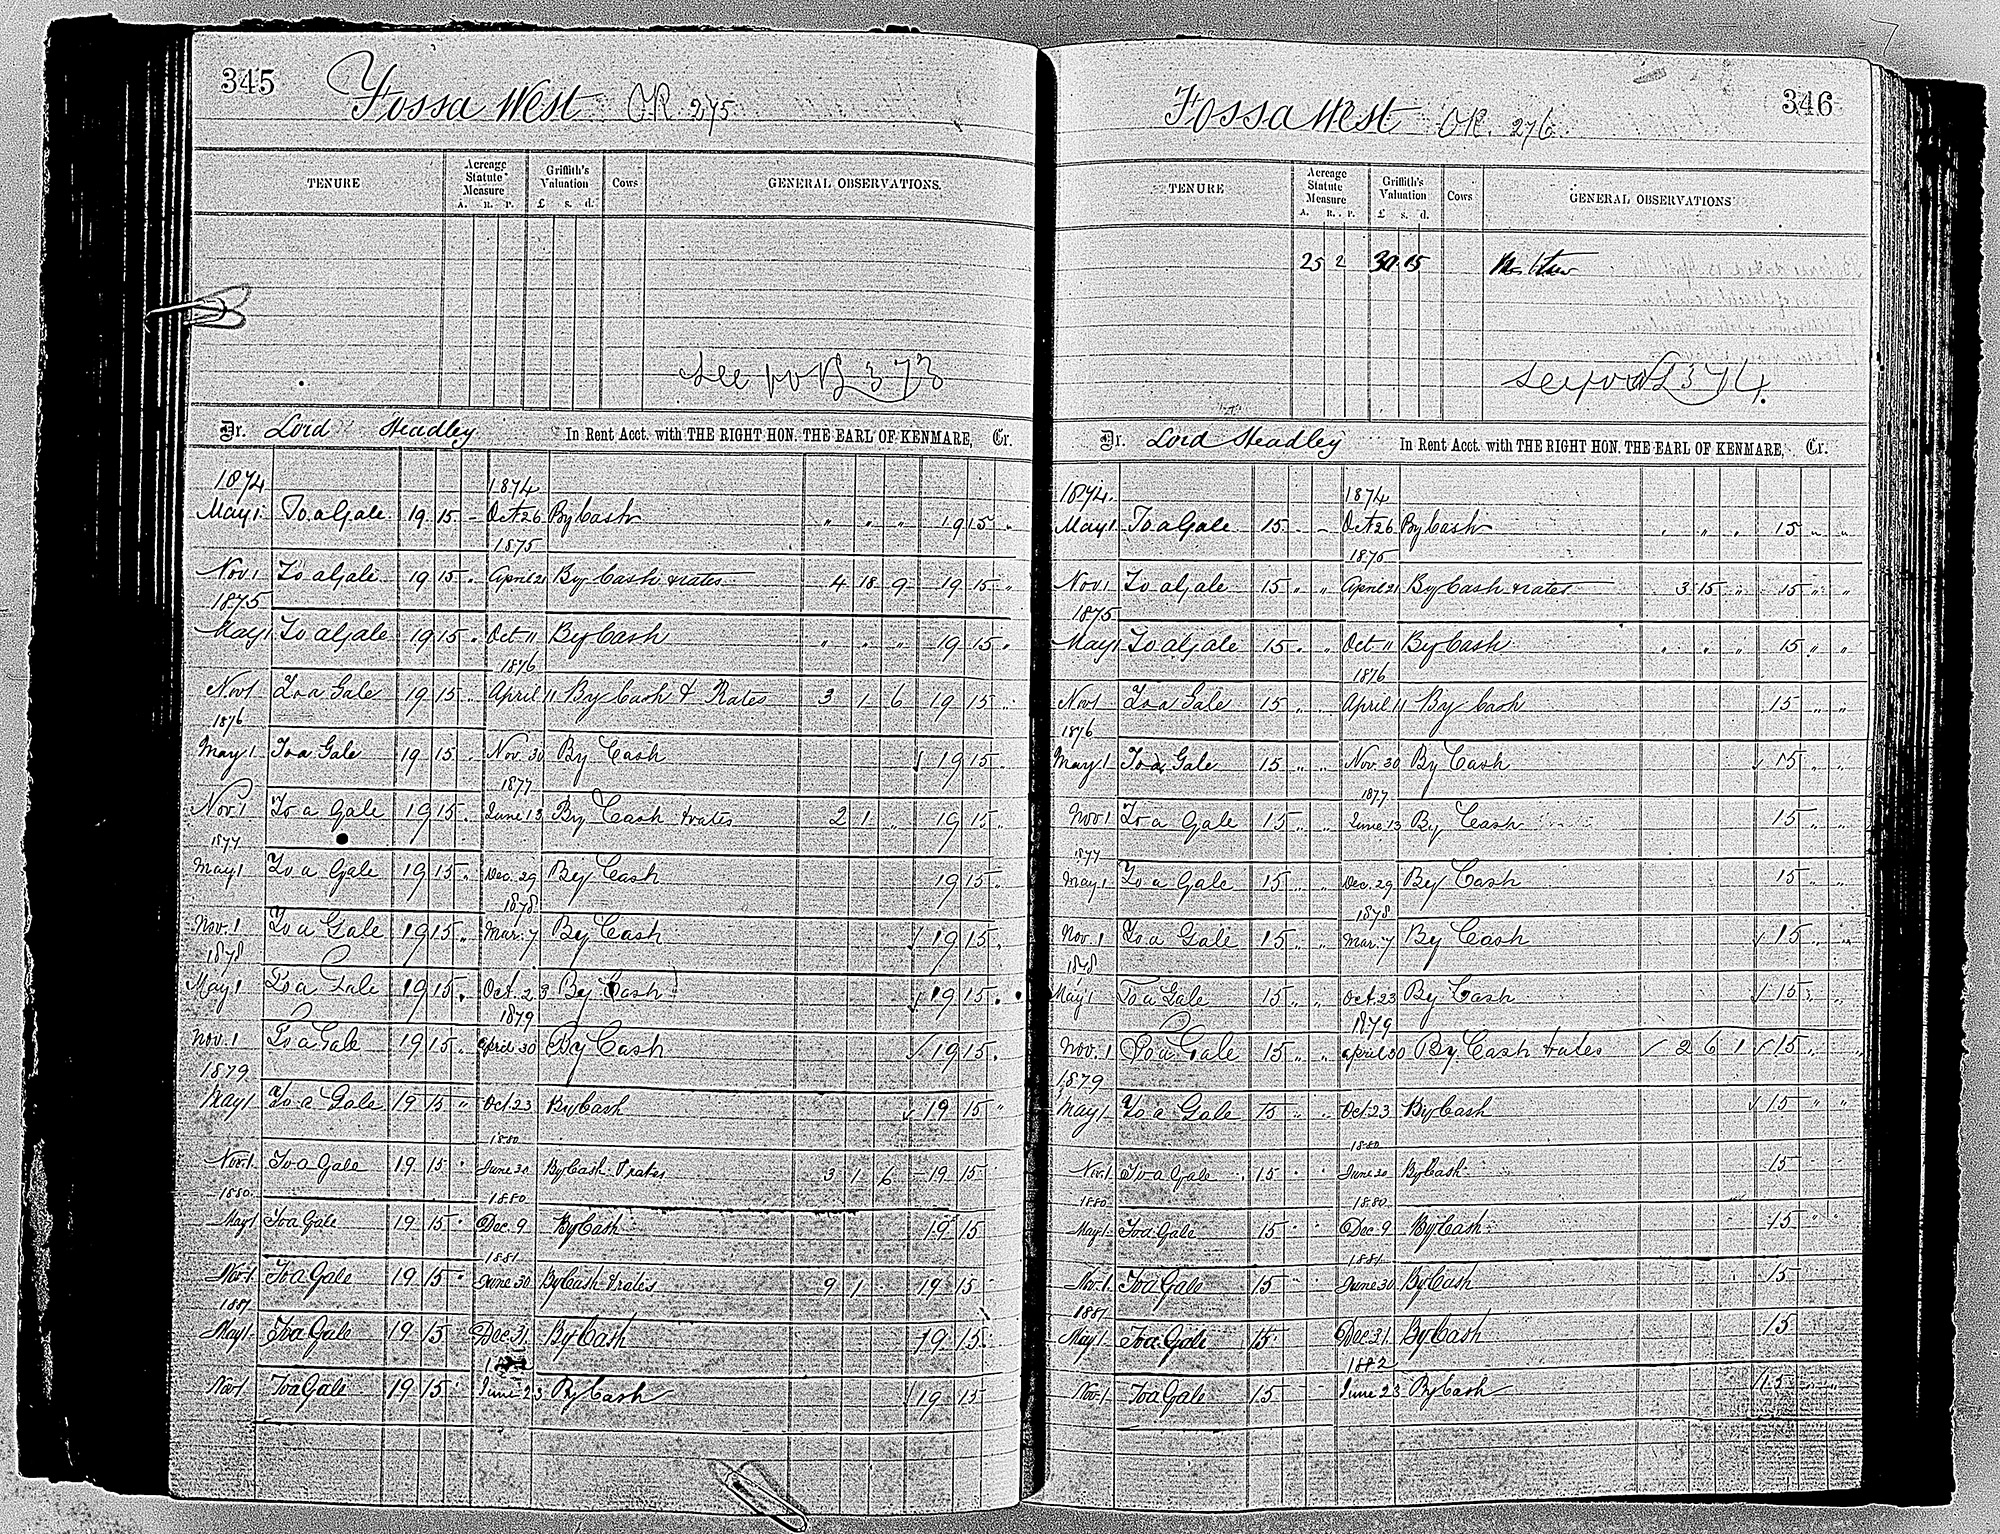 345 Fossa West OR. 275
TENURE Acreage Statute Measure A. R. P. Griffith's Valuation £ s. d. Cows GENERAL OBSERVATIONS.
see vol 373
Dr. Lord Headley In Rent Acct. with THE RIGHT HON. THE EARL OF KENMARE, Cr.
1874 1874
May 1 To a Gale 19 15 - Oct 26 By Cash " " " 19 15 "
1875
Nov 1 To a Gale 19 15 " April 21 By Cash & rates 4 18 9 19 15 "
1875
May 1 To a Gale 19 15 " Oct 11 By Cash " " " 19 15 "
1876
Nov 1 To a Gale 19 15 " April 11 By Cash & Rates 3 1 6 19 15 "
1876
May 1 To a Gale 19 15 " Nov. 30 By Cash 19 15 "
1877
Nov. 1 To a Gale 19 15 " June 13 By Cash & rates 2 1 " 19 15 "
1877
May 1 To a Gale 19 15 " Dec. 29 By Cash 19 15 "
1878
Nov. 1 To a Gale 19 15 " Mar. 7 By Cash 19 15 "
1878
May 1 To a Gale 19 15 " Oct. 23 By Cash 19 15 "
1879
Nov. 1 To a Gale 19 15 " April 30 By Cash 19 15 "
1879
May 1 To a Gale 19 15 " Oct 23 By Cash 19 15 "
1880
Nov. 1 To a Gale 19 15 " June 20 By Cash & rates 3 1 6 19 15
1880 1880
May 1 To a Gale 19 15 " Dec. 9 By Cash 19 15
1881
Nov. 1 To a Gale 19 15 " June 30 By Cash & rates 9 1 19 15
1881
May 1 To a Gale 19 15 Dec. 31 By Cash 19 15
Nov 1 To a Gale 19 15 " June 23 By Cash 19 15
346 Fossa West OR. 276
TENURE Acreage Statute Measure A. R. P. Griffith's Valuation £ s. d. Cows GENERAL OBSERVATIONS
25 2 30 15
see vol 374.
Dr. Lord Headley In Rent Acct. with THE RIGHT HON. THE EARL OF KENMARE, Cr.
1874. 1874
May 1 To a Gale 15 " - Oct 26 By Cash " " " 15 " "
1875
Nov 1 To a Gale 15 " " April 21 By Cash & rates 3 15 " 15 " "
1875
May 1 To a Gale 15 " " Oct 11 By Cash " " " 15 " "
1876
Nov 1 To a Gale 15 " " April 11 By Cash 15 " "
1876
May 1 To a Gale 15 " " Nov. 30 By Cash 15 " "
1877
Nov 1 To a Gale 15 " " June 13 By Cash 15 " "
1877
May 1 To a Gale 15 " " Dec. 29 By Cash 15 " "
1878
Nov. 1 To a Gale 15 " " Mar. 7 By Cash 15 " "
1878
May 1 To a Gale 15 " " Oct. 23 By Cash 15 " "
1879
Nov. 1 To a Gale 15 " " April 30 By Cash & rates 2 6 1 15 " "
1879
May 1 To a Gale 15 " " Oct. 23 By Cash 15 " "
1880
Nov. 1 To a Gale 15 " June 20 By Cash 15
1880 1880
May 1 To a Gale 15 " " Dec. 9 By Cash 15 " "
1881
Nov. 1 To a Gale 15 " " June 30 By Cash 15
1881
May 1 To a Gale 15 Dec. 31 By Cash 15
1882
Nov. 1 To a Gale 15 June 23 By Cash 15 " "